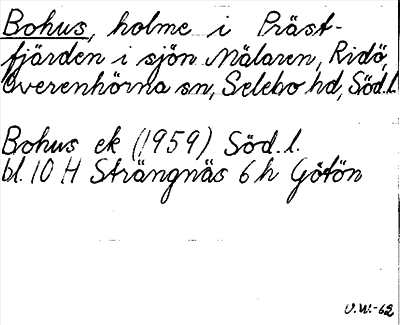 Bohus, holme i Präst-
fjärden i sjön Mälaren, Ridö,
Överenhörna sn, Selebo hd, Söd.l.
Bohus ek (1959) Söd.l.
bl. 10 H Strängnäs 6 h Götön
U.W.-62